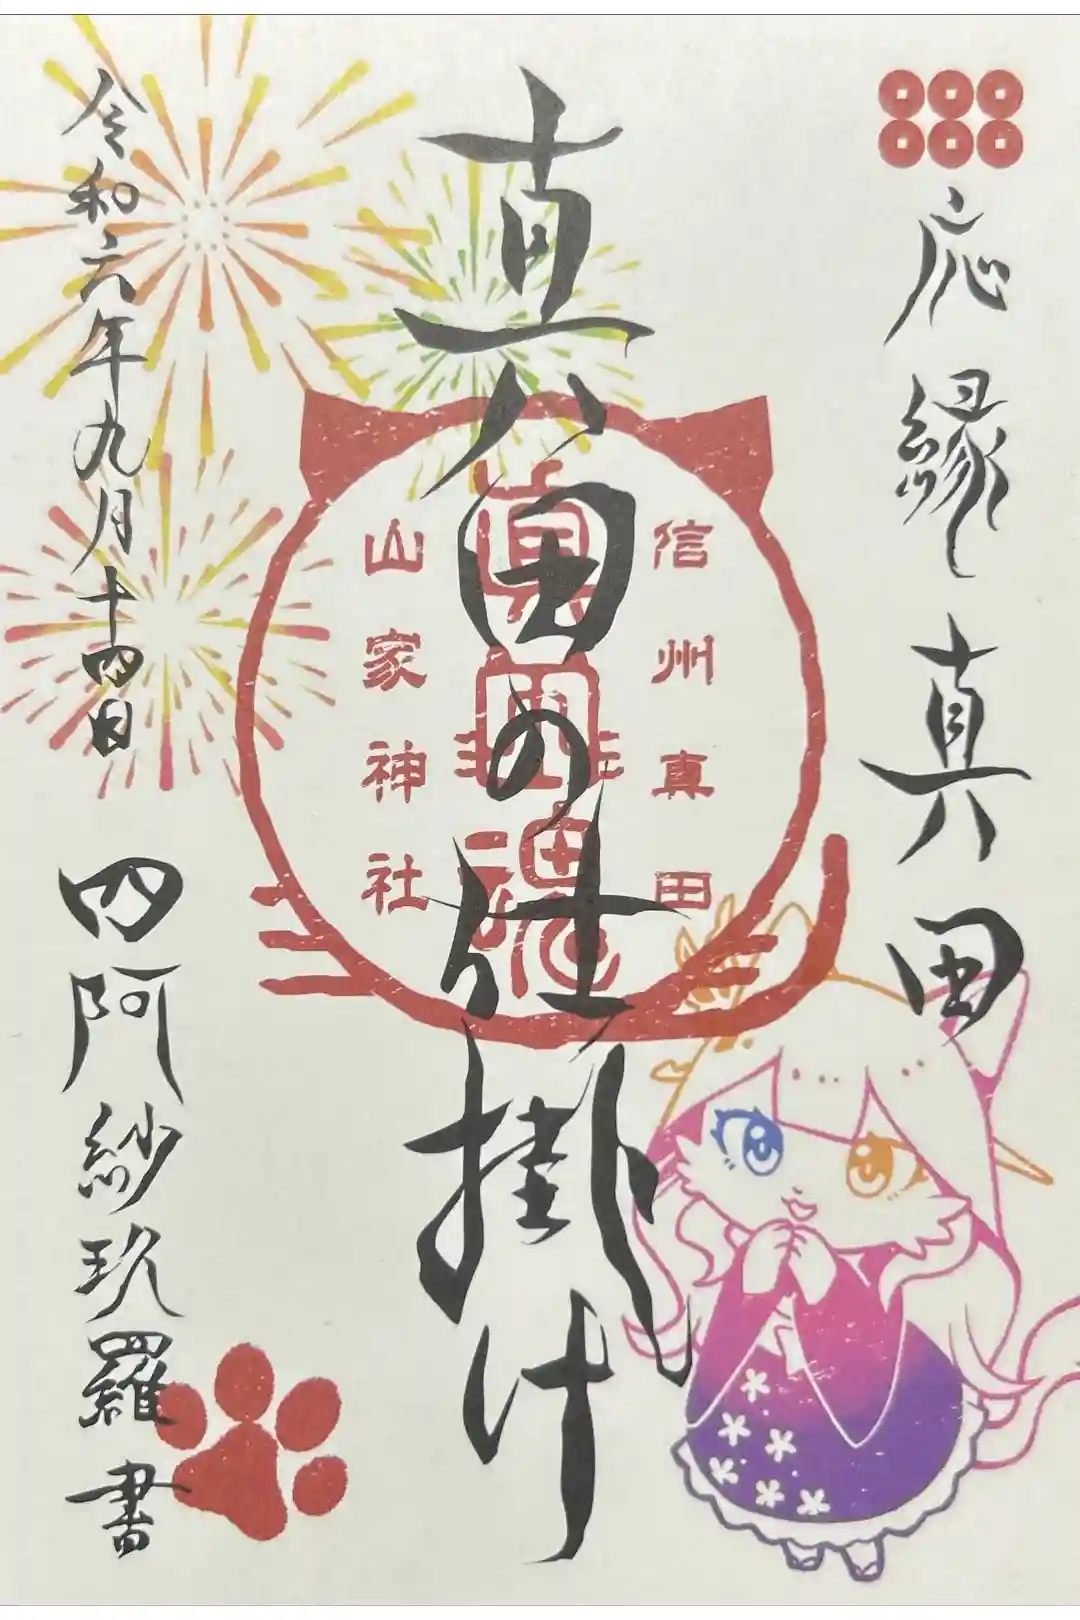 応縁 真田
真田の仕掛け
信州真田
山家神社
令和六年九月十四日
四阿紗玖羅 書